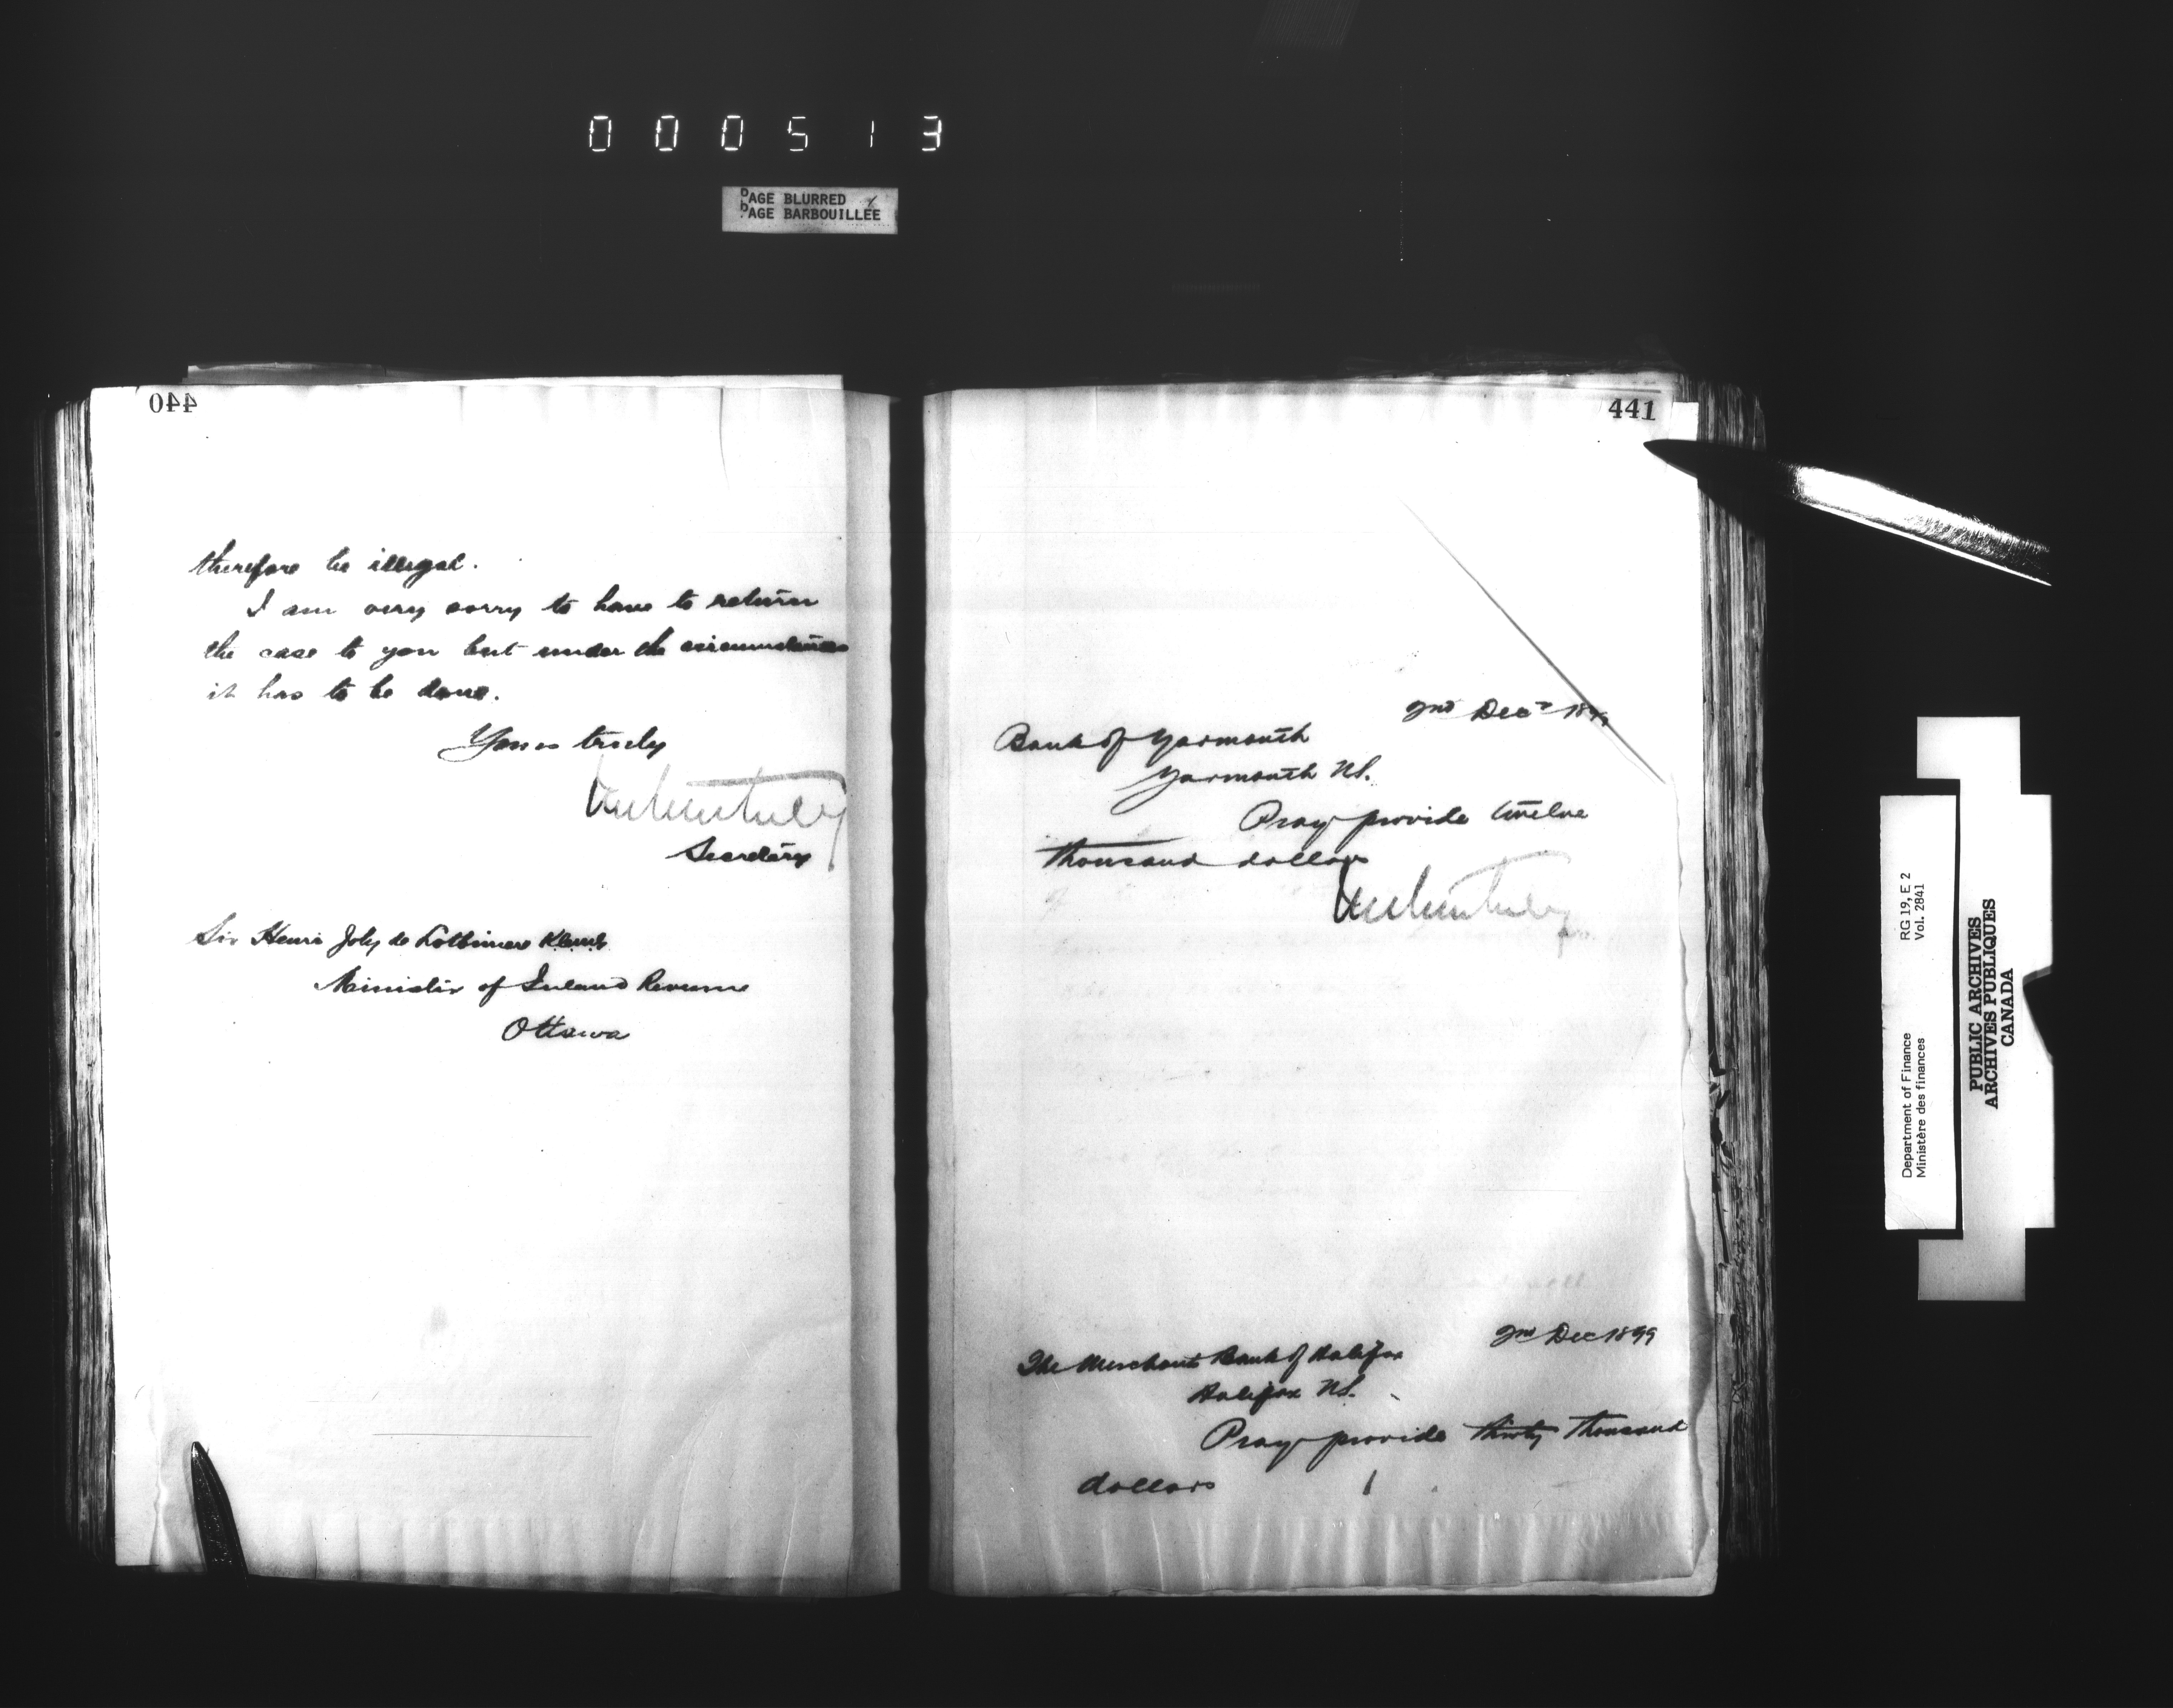 000513
PAGE BLURRED
PAGE BARBOUILLEE
440
therefore be illegal.
I am very sorry to have to return
the case to you but under the circumstances
it has to be done.
Yours truly
Secretary
Sir Henri Joly de Lotbiniere K.C.M.G.
Minister of Inland Revenue
Ottawa
441
2nd Decr 1899
Bank of Yarmouth
Yarmouth N.S.
Pray provide twelve
thousand dollars
2nd Dec 1899
The Merchants Bank of Halifax
Halifax N.S.
Pray provide thirty thousand
dollars
Department of Finance RG 19, E 2
Ministère des finances Vol. 2841
PUBLIC ARCHIVES
ARCHIVES PUBLIQUES
CANADA